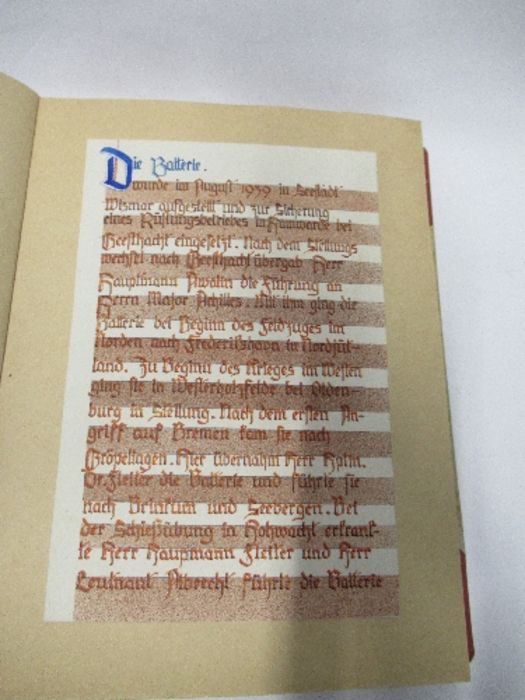 Die Batterie.
wurde im August 1939 in Seestadt
Wismar aufgestellt und zur Sicherung
eines Rüstungsbetriebes in Hamwarde bei
Geesthacht eingesetzt. Nach dem Stellungs
wechsel nach Geesthacht übergab Herr
Hauptmann Awalin die Führung an
Herrn Major Achilles. Mit ihm ging die
Batterie bei Beginn des Feldzuges im
Norden nach Frederikshavn in Nordjüt-
land. Zu Beginn des Krieges im Westen
ging sie in Westerholzfelde bei Olden-
burg in Stellung. Nach dem ersten An-
griff auf Bremen kam sie nach
Gröpelingen. Hier übernahm Herr Hptm.
Dr. Fletler die Batterie und führte sie
nach Brinkum und Seebergen. Bei
der Schießübung in Hohwacht erkrank-
te Herr Hauptmann Fletler und Herr
Leutnant Albrecht führte die Batterie